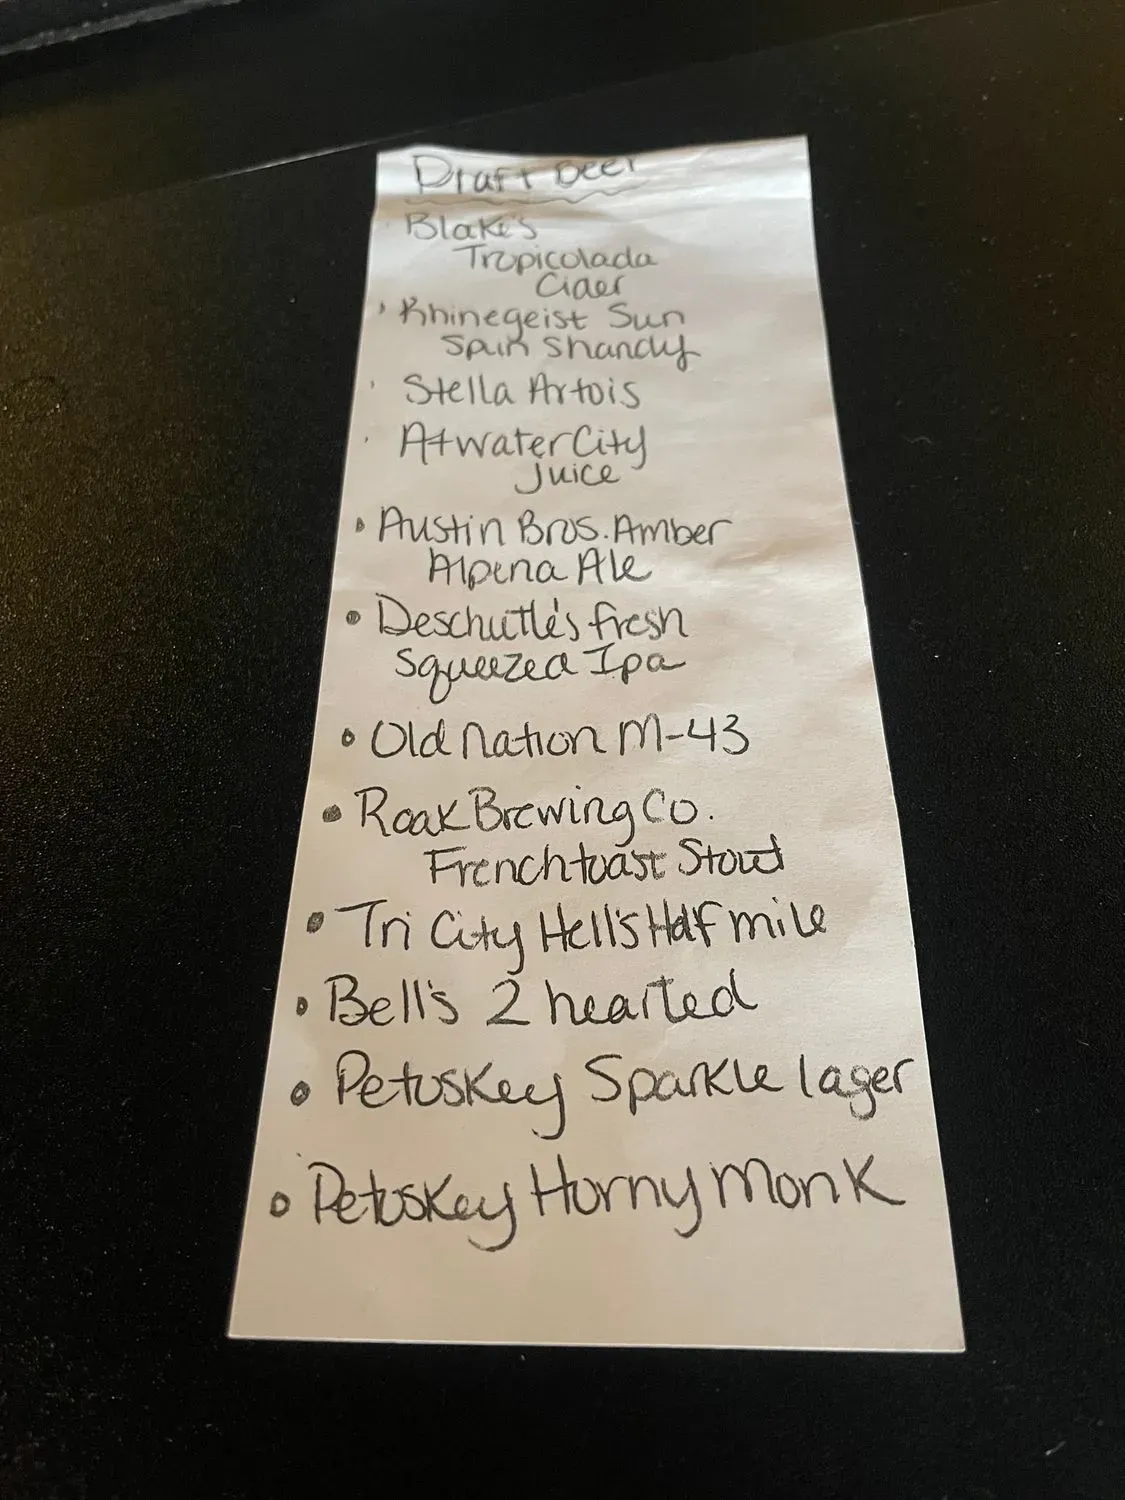 Draft Beer
Blake's
Tropicolada
Cider
• Rhinegeist Sun
Spun Shandy
• Stella Artois
• Atwater City
Juice
• Austin Bros. Amber
Alpena Ale
• Deschutle's fresh
Squeezed Ipa
• Old Nation M-43
• Roak Brewing Co.
French toast Stout
• Tri City Hell's Half mile
• Bell's 2 hearted
• Petoskey Sparkle lager
• Petoskey Horny Monk